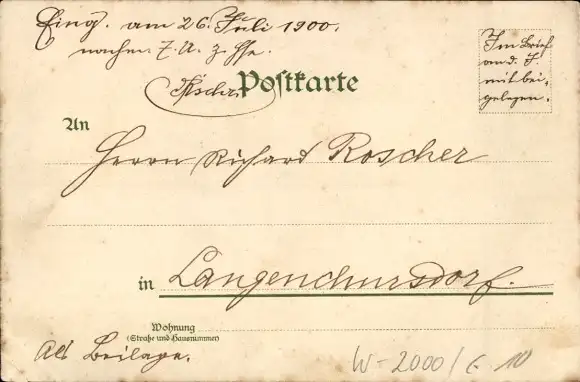 Eing. am 26. Juli 1900.
nachm. 7. U. z. Hse.
Im Brief
and. F.
mit bei-
gelegen.
Postkarte
An
Herrn Richard Roscher
in Langenchursdorf.
Wohnung
(Straße und Hausnummer)
Als Beilage.
W-2000/